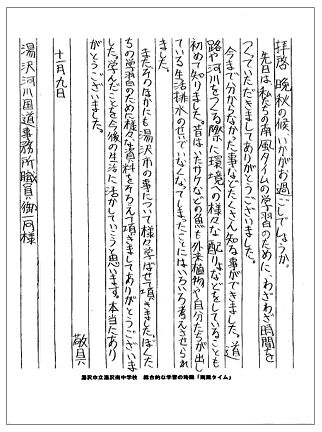 拝啓 晩秋の候いかがお過ごしでしょうか。
先日は私たちの南風タイムの学習のために、わざわざ時間を
つくっていただきましてありがとうございました。
今まで分からなかった事などたくさん知る事ができました。道
路や河川をつくる際に環境への様々な配りょなどをしていることも
初めて知りました。昔はいたサケなどの魚も外来植物や自分たちが出し
ている生活排水のせいでいなくなってしまったことにはいろいろ考えさせられ
ました。
またそのほかにも湯沢市の事について様々学ばせて頂きました。ぼくた
ちの学習のために様々な資料をそろえて頂きましてありがとうございま
した。学んだことを今後の生活に活かしていこうと思います。本当にあり
がとうございました。
敬具
十一月九日
湯沢河川国道事務所職員御一同様
湯沢市立湯沢南中学校 総合的な学習の時間「南風タイム」